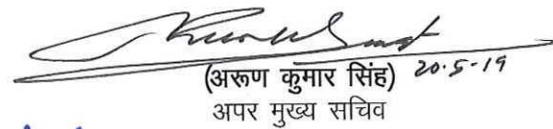 (अरूण कुमार सिंह) 20.5-19
अपर मुख्य सचिव